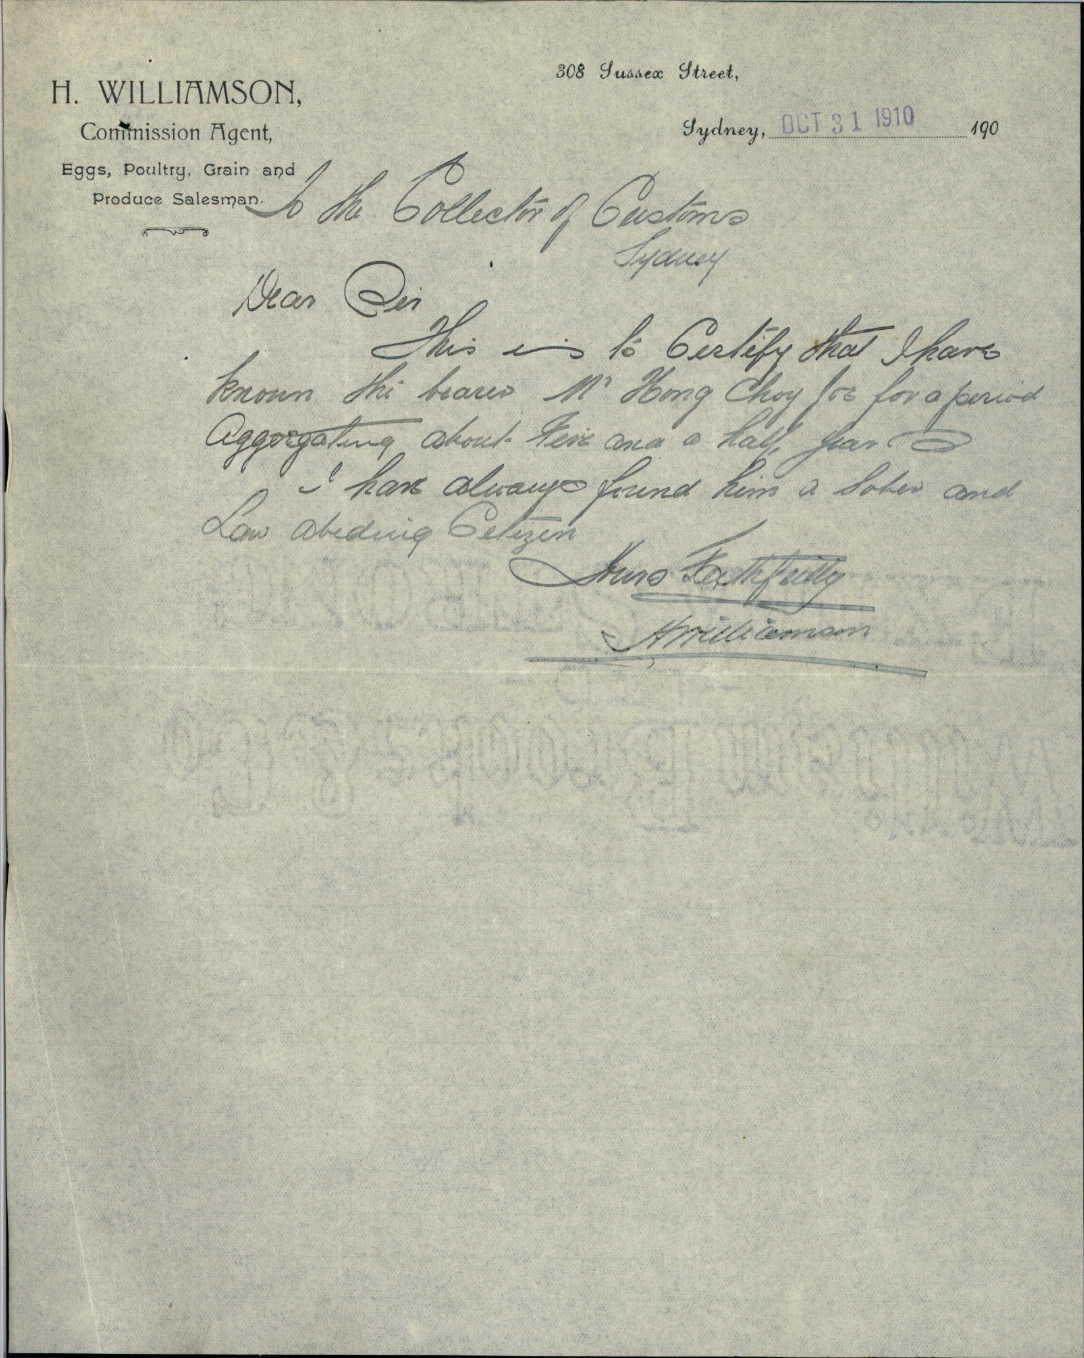 H. WILLIAMSON,
Commission Agent,
Eggs, Poultry, Grain and
Produce Salesman.
308 Sussex Street,
Sydney, OCT 31 1910 190
To the Collector of Customs
Sydney
Dear Sir
This is to Certify that I have
known the bearer Mr Hong Choy Joe for a period
Aggregating about Five and a half years
I have always found him a Sober and
Law abiding Citizen
Yours Faithfully
H Williamson